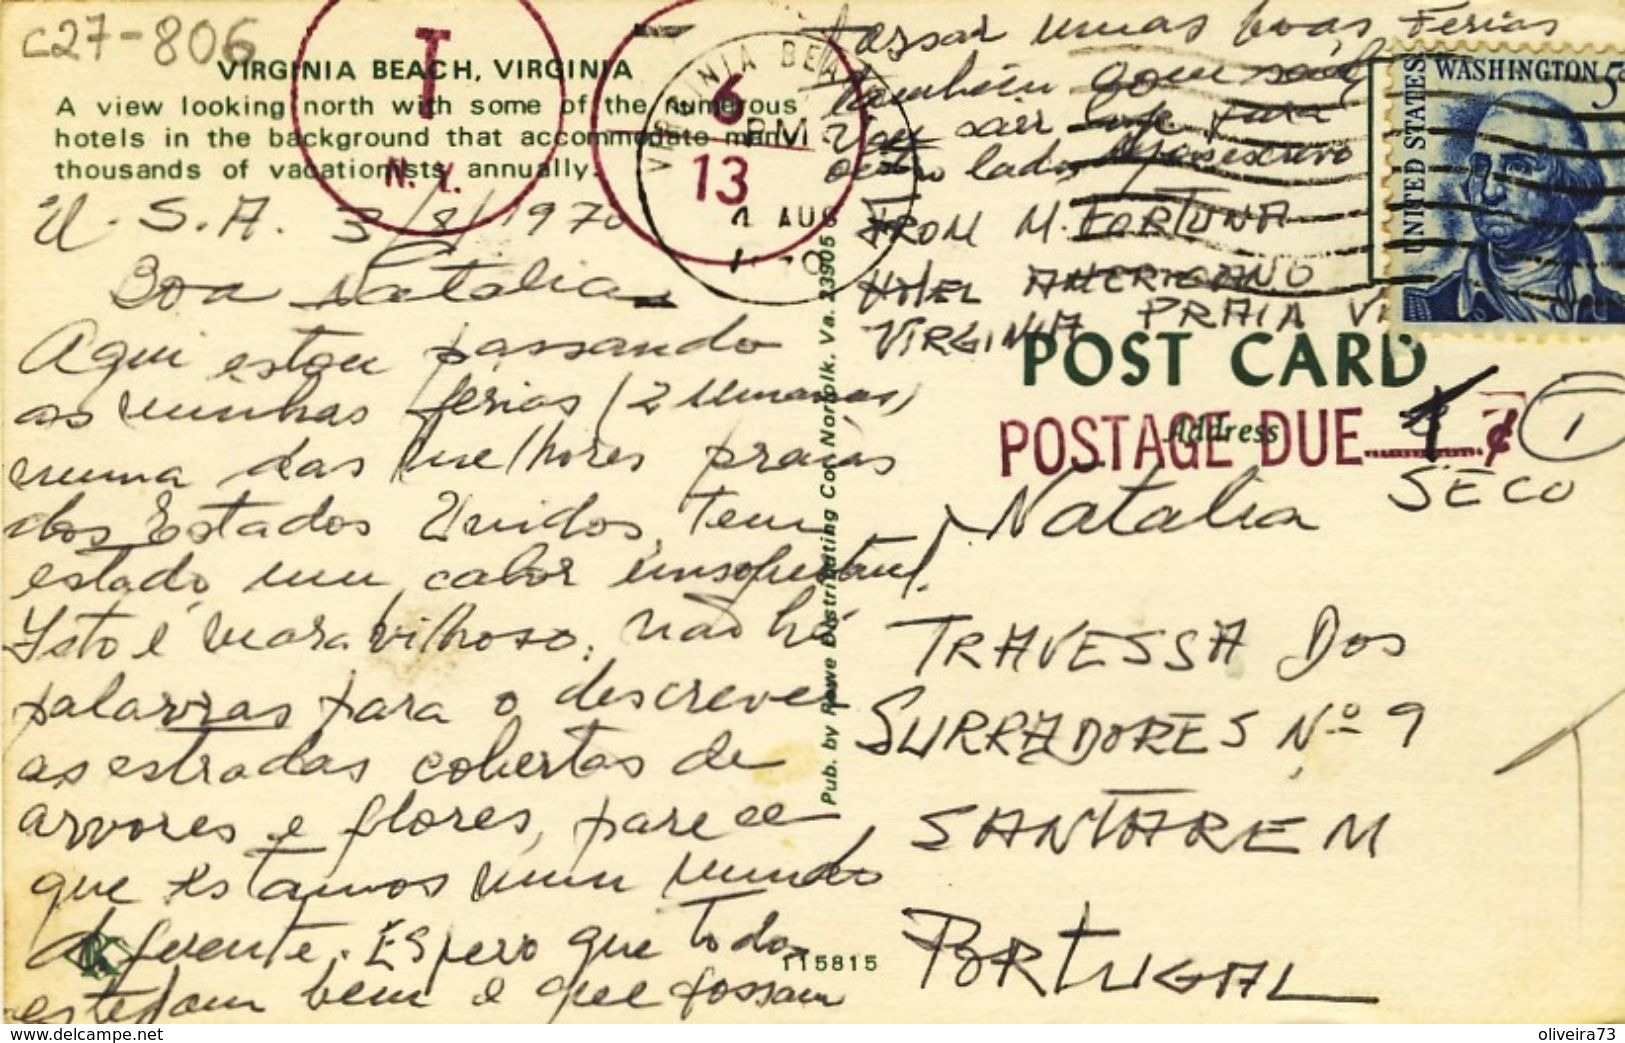 C27-806
VIRGINIA BEACH, VIRGINIA
A view looking north with some of the numerous
hotels in the background that accommodate many
thousands of vacationists annually.
T
N.Y.
6
13
VIRGINIA BEA
PM
4 AUG
U.S.A. 3/8/1970
Boa Natalia
Aqui estou passando
as minhas ferias (2 semanas)
numa das melhores praias
dos Estados Unidos, Tem
estado um calor insoportavel.
Isto é maravilhoso, não há
palavras para o descrever
as estradas cobertas de
arvores e flores, parece
que estamos num mundo
diferente. Espero que todos
estejam bem e que possam
passar umas boas Ferias
também com
Vou sair hoje para
outro lado escrevo
FROM M. FORTUNA
HOTEL AMERICANO
VIRGINIA PRAIA VI
Pub. by Rowe Distributing Co., Norfolk, Va. 23905
115815
UNITED STATES
WASHINGTON 5c
POST CARD
Address
POSTAGE DUE ¢
1
Natalia SECO
TRAVESSA DOS
SURRADORES Nº 9
SANTAREM
PORTUGAL
https://www.delcampe.net
oliveira73